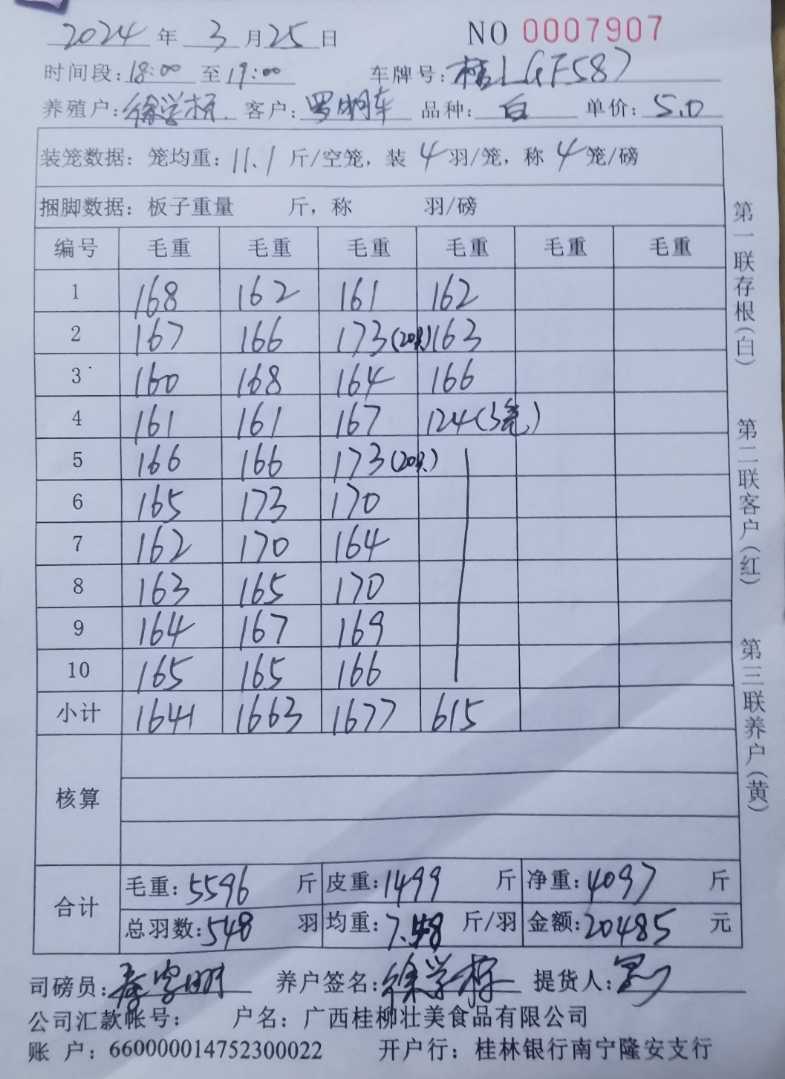 2024 年 3 月 25 日 NO 0007907
时间段: 18:00 至 19:00 车牌号: 桂LGF587
养殖户: 徐学标 客户: 罗明车 品种: 白 单价: 5.0
装笼数据: 笼均重: 11.1 斤/空笼, 装 4 羽/笼, 称 4 笼/磅
捆脚数据: 板子重量 斤, 称 羽/磅
编号 毛重 毛重 毛重 毛重 毛重 毛重
1 168 162 161 162
2 167 166 173(20只) 163
3 160 168 164 166
4 161 161 167 124(3笼)
5 166 166 173(20只)
6 165 173 170
7 162 170 164
8 163 165 170
9 164 167 169
10 165 165 166
小计 1641 1663 1677 615
核算
合计 毛重: 5596 斤 皮重: 1499 斤 净重: 4097 斤
总羽数: 548 羽 均重: 7.48 斤/羽 金额: 20485 元
司磅员: 养户签名: 徐学标 提货人:
公司汇款帐号: 户名: 广西桂柳壮美食品有限公司
账 户: 660000014752300022 开户行: 桂林银行南宁隆安支行
第一联存根(白) 第二联客户(红) 第三联养户(黄)